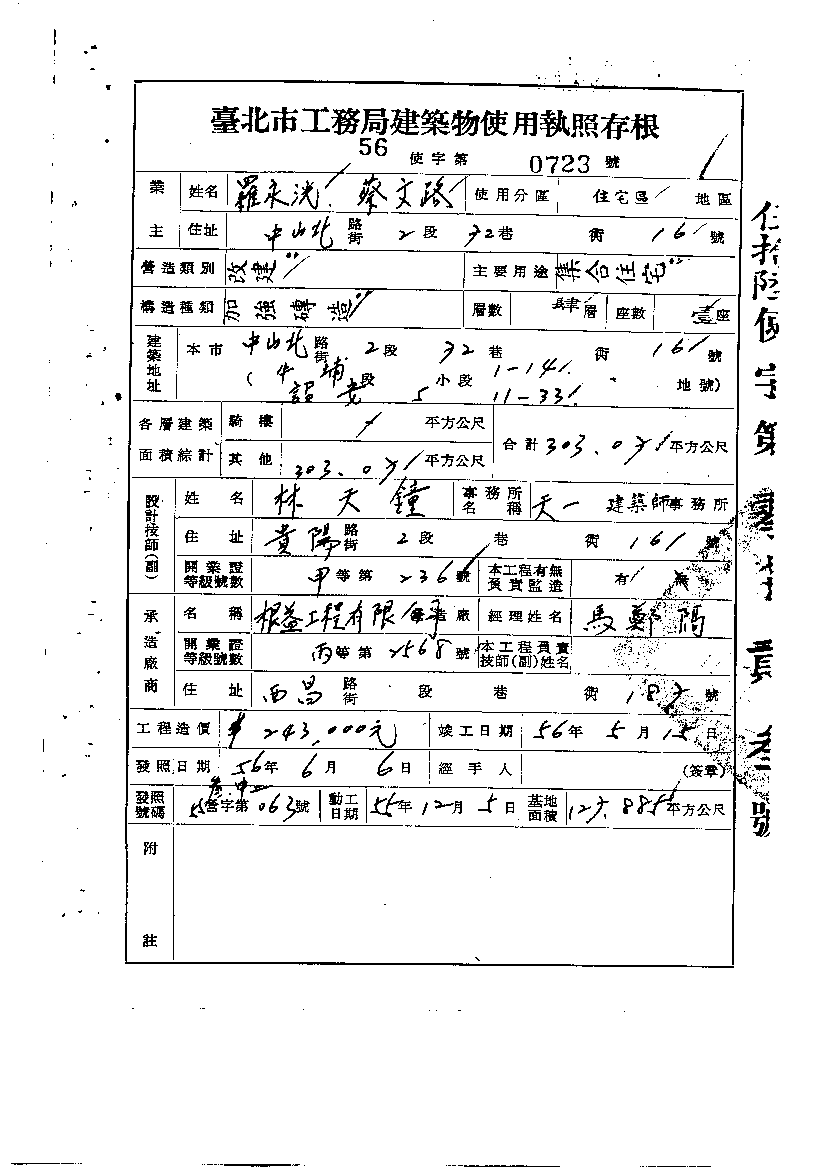 臺北市工務局建築物使用執照存根
56 使字第 0723 號
業主 姓名 羅永洸 蔡文路 使用分區 住宅區 地區
住址 中山北路街 2段 72巷 街 16 號
營造類別 改建 主要用途 集合住宅
構造種類 加強磚造 層數 肆層 座數 壹座
建築地址 本市 中山北路街 2段 72巷 街 16 號
(牛埔段 小段 1-141 地號)
5 11-33
各層建築面積綜計 騎樓 平方公尺 合計 303.07 平方公尺
其他 303.07 平方公尺
設計技師(副) 姓名 林天鐘 事務所名稱 天一 建築師事務所
住址 貴陽路街 2段 巷 街 161 號
開業證等級號數 甲等第 236 號 本工程有無負責監造 有 無
承造廠商 名稱 根益工程有限 營造廠 經理姓名 馬鄭
開業證等級號數 丙等第 2568 號 本工程負責技師(副)姓名
住址 西昌路街 段 巷 街 187 號
工程造價 243,000元 竣工日期 56年5月15日
發照日期 56年6月6日 經手人 (簽章)
發照號碼 55營字第063號 動工日期 55年12月5日 基地面積 127.885平方公尺
附註
伍拾陸使字第零柒貳叁號